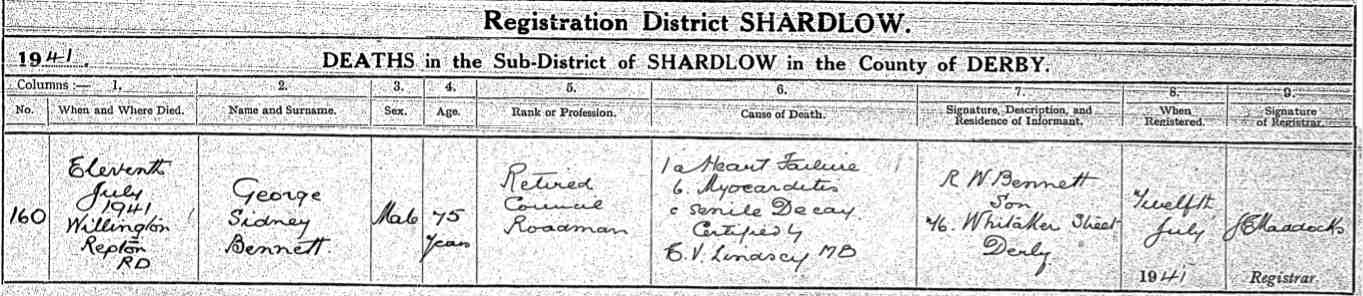 Registration District SHARDLOW.
1941. DEATHS in the Sub-District of SHARDLOW in the County of DERBY.
Columns :— 1. 2. 3. 4. 5. 6. 7. 8. 9.
No. When and Where Died. Name and Surname. Sex. Age. Rank or Profession. Cause of Death. Signature, Description, and Residence of Informant. When Registered. Signature of Registrar.
160
Eleventh
July
1941
Willington
Repton
RD
George
Sidney
Bennett.
Male
75
years
Retired
Council
Roadman
1a Heart Failure
b. Myocarditis
c Senile Decay.
Certified by
E. V. Lindsey MB
R W Bennett
Son
46. Whitaker Street
Derby
Twelfth
July
1941
J E Maddocks
Registrar.